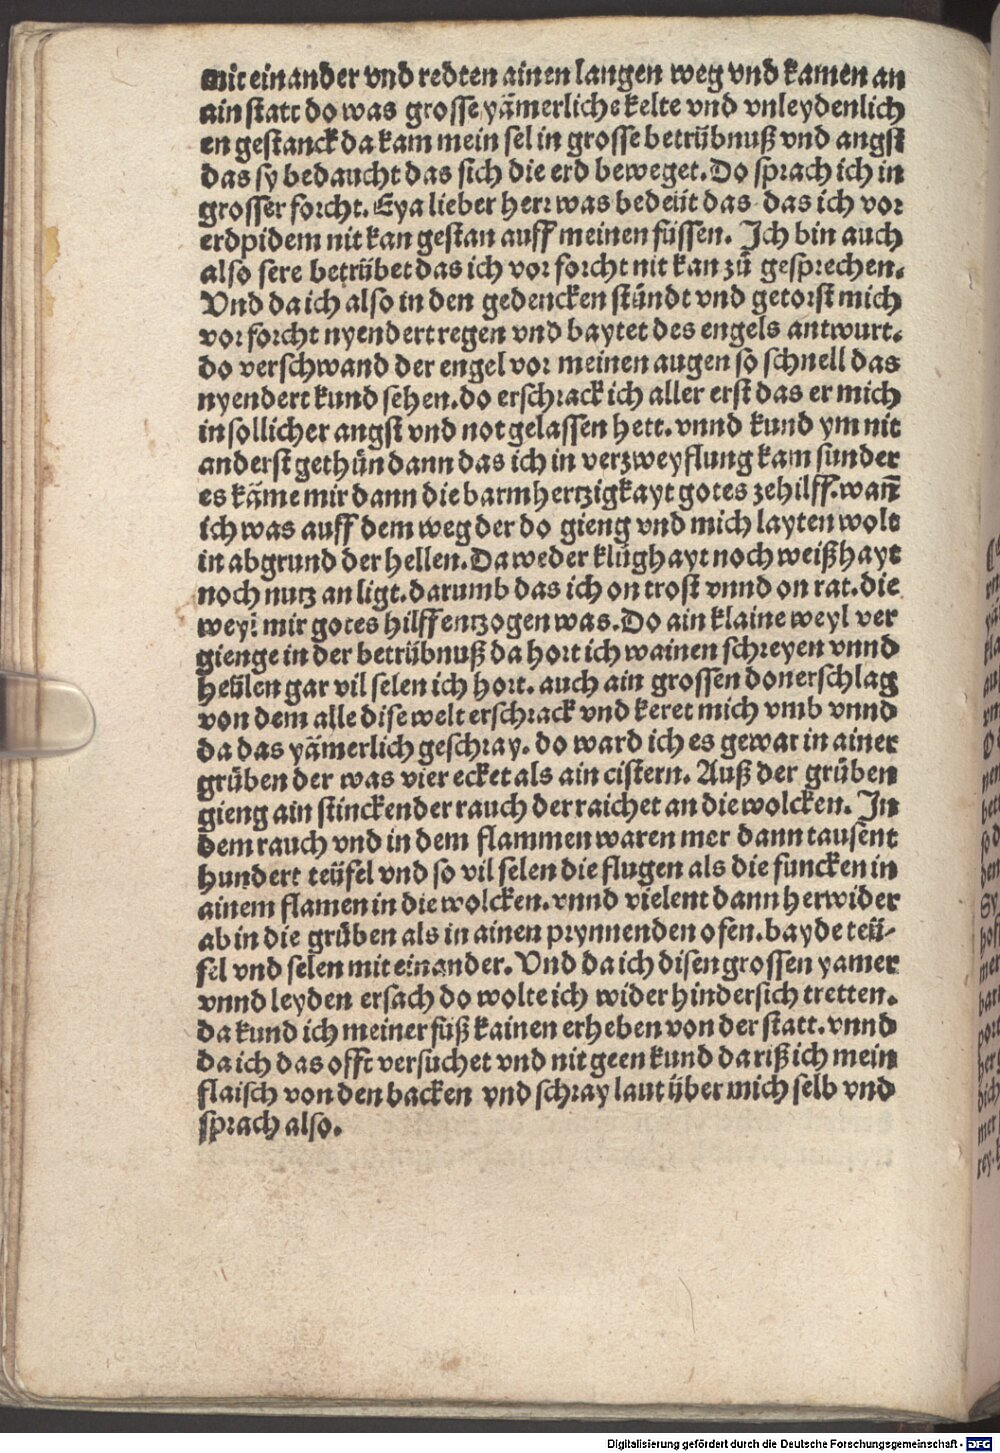 mit einander vnd redten ainen langen weg vnd kamen an
ain statt do was grosse yämerliche kelte vnd vnleydenlich
en gestanck da kam mein sel in grosse betrübnuß vnd angst
das sy bedaucht das sich die erd beweget. Do sprach ich in
grosser forcht. Eya lieber herr was bedeüt das das ich vor
erdpidem nit kan gestan auff meinen füssen. Ich bin auch
also sere betrübet das ich vor forcht nit kan zů gesprechen.
Vnd da ich also in den gedencken stůndt vnd getorst mich
vor forcht nyendert regen vnd baytet des engels antwurt.
do verschwand der engel vor meinen augen so schnell das
nyendert kund sehen. do erschrack ich aller erst das er mich
in sollicher angst vnd not gelassen hett. vnnd kund ym nit
anderst gethůn dann das ich in verzweyflung kam sunder
es käme mir dann die barmhertzigkayt gotes zehilff. wañ
ich was auff dem weg der do gieng vnd mich layten wolt
in abgrund der hellen. Da weder klůghayt noch weißhayt
noch nutz an ligt. darumb das ich on trost vnnd on rat. die
weyl mir gotes hilff entzogen was. Do ain klaine weyl ver
gienge in der betrübnuß da hort ich wainen schreyen vnnd
heülen gar vil selen ich hort. auch ain grossen donerschlag
von dem alle dise welt erschrack vnd keret mich vmb vnnd
da das yämerlich geschray. do ward ich es gewar in ainer
grůben der was vier ecket als ain cistern. Auß der grůben
gieng ain stinckender rauch der raichet an die wolcken. In
dem rauch vnd in dem flammen waren mer dann tausent
hundert teüfel vnd so vil selen die flugen als die funcken in
ainem flamen in die wolcken. vnnd vielent dann herwider
ab in die grůben als in ainen prynnenden ofen. bayde teü-
fel vnd selen mit einander. Vnd da ich disen grossen yamer
vnnd leyden ersach do wolte ich wider hindersich tretten.
da kund ich meiner füß kainen erheben von der statt. vnnd
da ich das offt versuchet vnd nit geen kund da riß ich mein
flaisch von den backen vnd schray laut über mich selb vnd
sprach also.
Digitalisierung gefördert durch die Deutsche Forschungsgemeinschaft - DFG